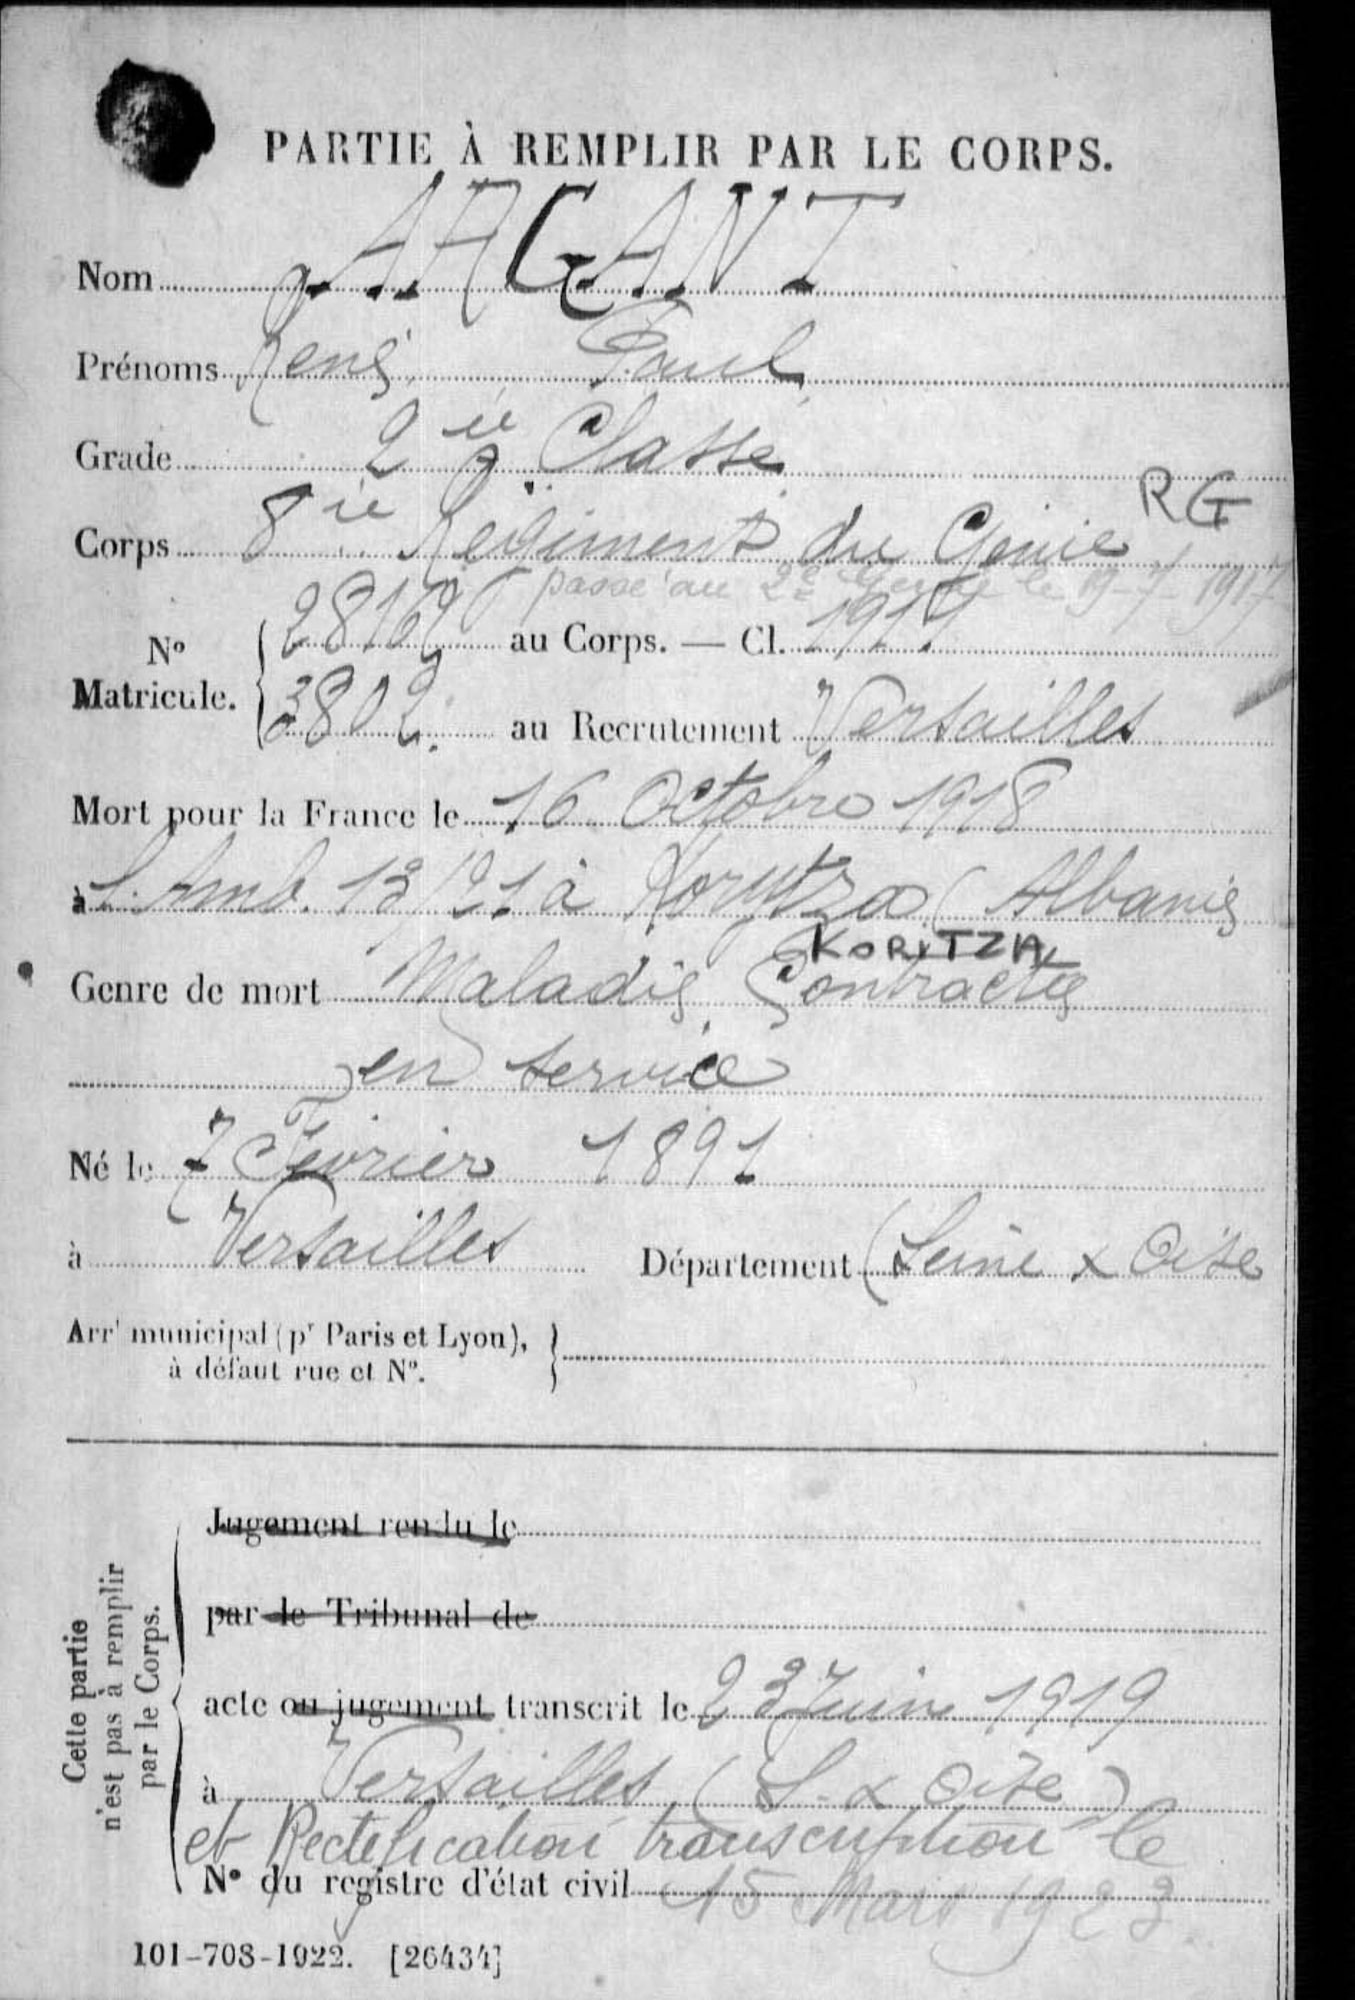 PARTIE À REMPLIR PAR LE CORPS.
Nom ARGANT
Prénoms René Paul
Grade 2ie Classe
RG
Corps 8ie Régiment du Génie
passé au 2e Génie le 19-7-1917
No Matricule. 28162 au Corps. — Cl. 1911
3802. au Recrutement Versailles
Mort pour la France le 16 Octobre 1918
à l'Amb. 13/21 à Korytza (Albanie
KORITZA
Genre de mort Maladie Contractée
en service
Né le 7 Février 1891
à Versailles Département (Seine & Oise
Arrt municipal (pr Paris et Lyon),
à défaut rue et No.
Cette partie
n'est pas à remplir
par le Corps.
Jugement rendu le
par le Tribunal de
acte ou jugement transcrit le 23 Juin 1919
à Versailles (S. & Oise)
et Rectification transcription le
No du registre d'état civil 15 Mars 1923.
101-708-1922. [26434]